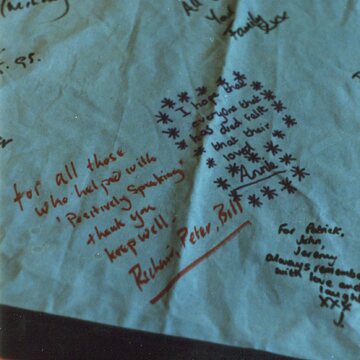 All
You
Family xxx
I hope that
everyone that
has died felt
that their
loved
Annie
for all those
who helped with
'Positively Speaking'
thank you
keep well.
Richard, Peter, Bill
For Patrick,
John,
Jeremy
always remember
with love and
laugh
xxx